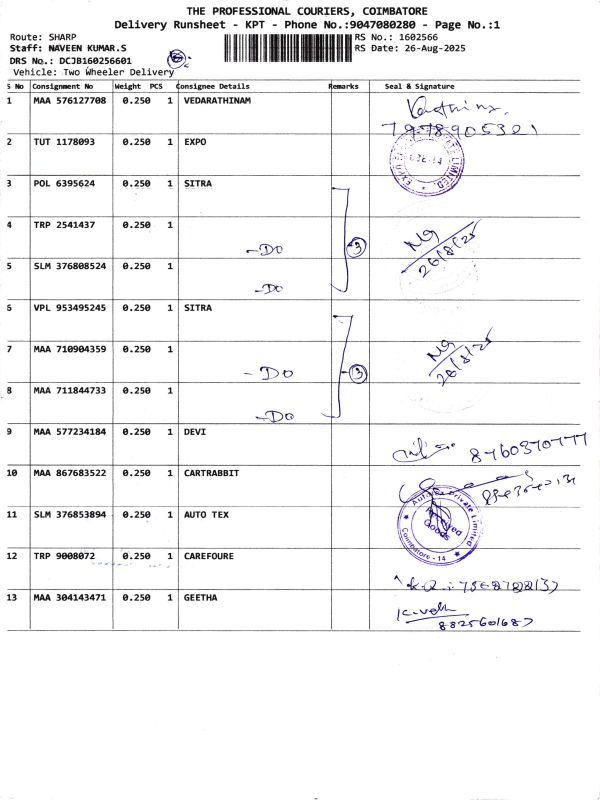 THE PROFESSIONAL COURIERS, COIMBATORE
Delivery Runsheet - KPT - Phone No.:9047080280 - Page No.:1
Route: SHARP RS No.: 1602566
Staff: NAVEEN KUMAR.S RS Date: 26-Aug-2025
DRS No.: DCJB160256601
Vehicle: Two Wheeler Delivery
S No Consignment No Weight PCS Consignee Details Remarks Seal & Signature
1 MAA 576127708 0.250 1 VEDARATHINAM
2 TUT 1178093 0.250 1 EXPO
3 POL 6395624 0.250 1 SITRA
4 TRP 2541437 0.250 1
-DO 3 26/8/25
5 SLM 376808524 0.250 1
-DO
6 VPL 953495245 0.250 1 SITRA
7 MAA 710904359 0.250 1
-DO 3 26/8/25
8 MAA 711844733 0.250 1
-DO
9 MAA 577234184 0.250 1 DEVI
8760370777
10 MAA 867683522 0.250 1 CARTRABBIT
11 SLM 376853894 0.250 1 AUTO TEX
Private Limited
Goods
Coimbatore - 14
12 TRP 9008072 0.250 1 CAREFOURE
13 MAA 304143471 0.250 1 GEETHA
8825601687